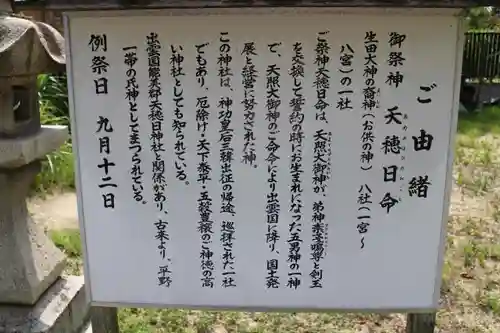 ご由緒
御祭神　天穂日命
あめのほひのみこと
生田大神の裔神（お供の神）　八社（一宮～
八宮）の一社
ご祭神天穂日命は、天照大御神が、弟神素盞嗚尊と剣玉
を交換して誓約の時にお生まれになった五男神の一神
で、天照大御神のご命令により出雲国に降り、国土発
展と経営に努力された神。
この神社は、神功皇后三韓出征の帰途、巡拝された一社
でもあり、厄除け・天下泰平・五穀豊穣のご神徳の高
い神社としても知られている。
出雲国能美郡天穂日神社と関係があり、古来より、平野
一帯の氏神として立つられている。
例祭日　九月十二日